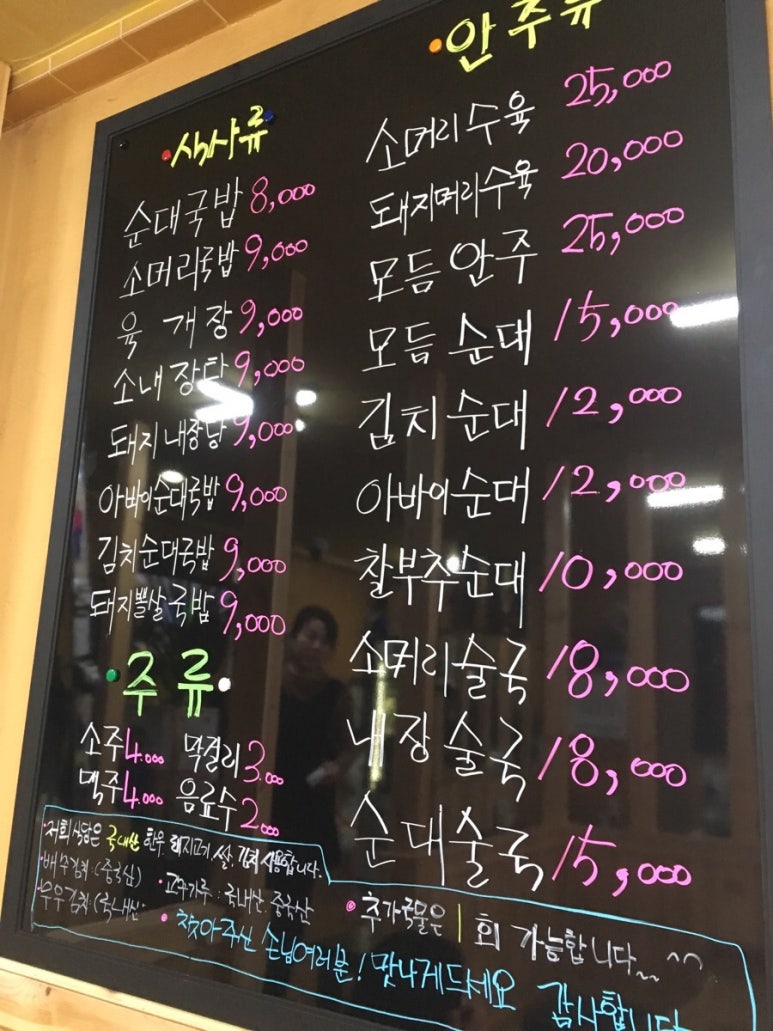 식사류
순대국밥 8,000
소머리국밥 9,000
육 개 장 9,000
소내장탕 9,000
돼지 내장탕 9,000
아바이순대국밥 9,000
김치순대국밥 9,000
돼지뽈살국밥 9,000
주 류
소주 4.000 막걸리 3.000
맥주 4.000 음료수 2.000
안 주 류
소머리수육 25,000
돼지머리수육 20,000
모듬 안주 25,000
모듬 순대 15,000
김치 순대 12,000
아바이순대 12,000
찰부추순대 10,000
소머리술국 18,000
내장 술국 18,000
순대술국 15,000
저희 식당은 국내산 한우 돼지고기, 쌀, 김치 사용합니다.
배추김치:(중국산) 고추가루 : 국내산. 중국산
김치:(국내산)
추가국물은 1회 가능합니다~ ^^
찾아주신 손님여러분! 맛나게드세요 감사합니다